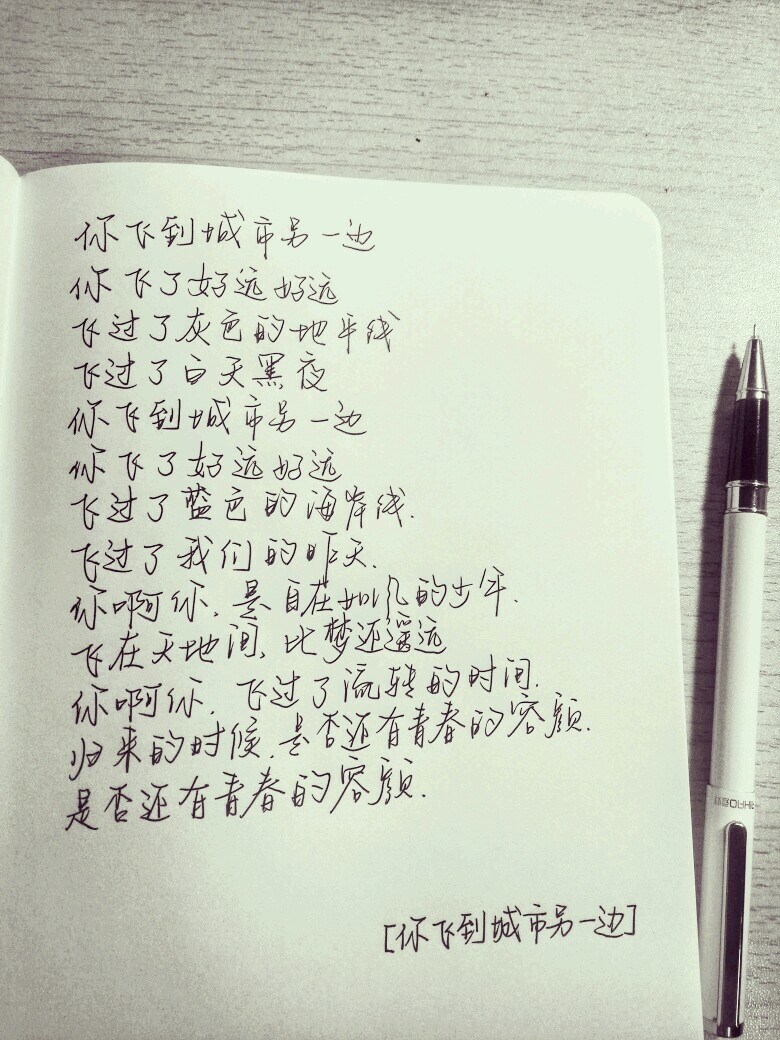 你飞到城市另一边
你飞了好远好远
飞过了灰色的地平线
飞过了白天黑夜
你飞到城市另一边
你飞了好远好远
飞过了蓝色的海岸线.
飞过了我们的昨天.
你啊你,是自在如风的少年.
飞在天地间,比梦还遥远
你啊你,飞过了流转的时间.
归来的时候,是否还有青春的容颜.
是否还有青春的容颜.
[你飞到城市另一边]